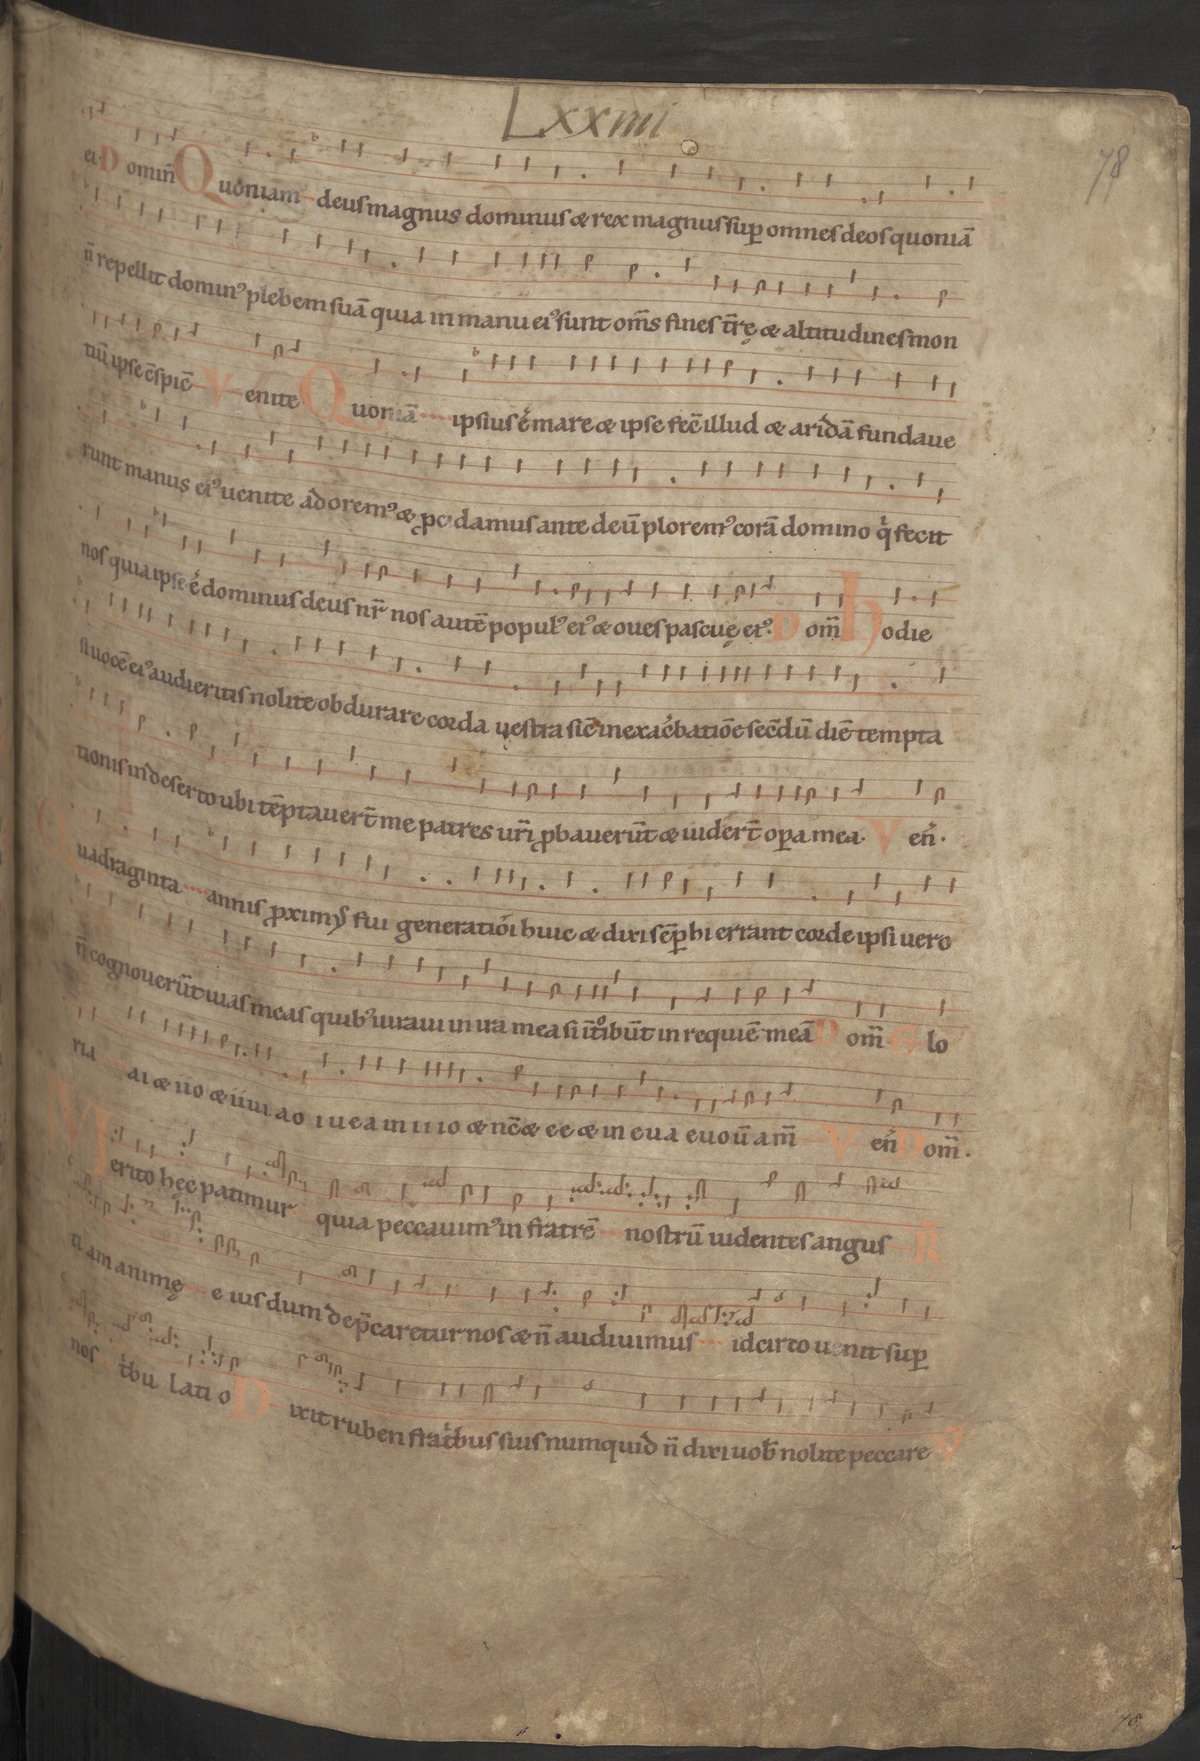 Lxxiiii
78
ei. Domin̄ Quoniam deus magnus dominus & rex magnus sup̱ omnes deos quoniā
n̄ repellit dominꝰ plebem suā quia in manu eiꝰ sunt om̄s fines t̄rę & altitudines mon
tiū ipse c̄spic̄ Venite Quoniā ipsius ē mare & ipse fec̄ illud & aridā fundaue
runt manus eiꝰ uenite adoremꝰ & ꝓcidamus ante deū ploremꝰ corā domino q̇ fecit
nos quia ipse ē dominus deus nr̄ nos autē populꝰ eiꝰ & oues pascuę eiꝰ. Dom̄ Hodie
si uocē eiꝰ audieritis nolite obdurare corda uestra sic̄ in exac̓batiōe sec̄dū diē tempta
tionis in deserto ubi tēptauer̄t me patres ur̄i ꝓbauerūt & uider̄t oꝑa mea. Ven̄.
Quadraginta annis ꝓximꝰ fui generatiōi huic & dixi sēꝑ hi errant corde ipsi uero
n̄ cognouerūt uias meas quibꝰ iuraui in ira mea si īt̊ibūt in requiē meā Dom̄ Glo
ria
Merito hęc patimur quia peccauimꝰ in fratrē nostrū uidentes angus R̄
tiam animę eius dum dep̄caretur nos & n̄ audiuimus idcirco uenit suꝑ
nos t̓bulatio Dixit ruben frat̓bus suis numquid n̄ dixi uob̄ nolite peccare V̄
78